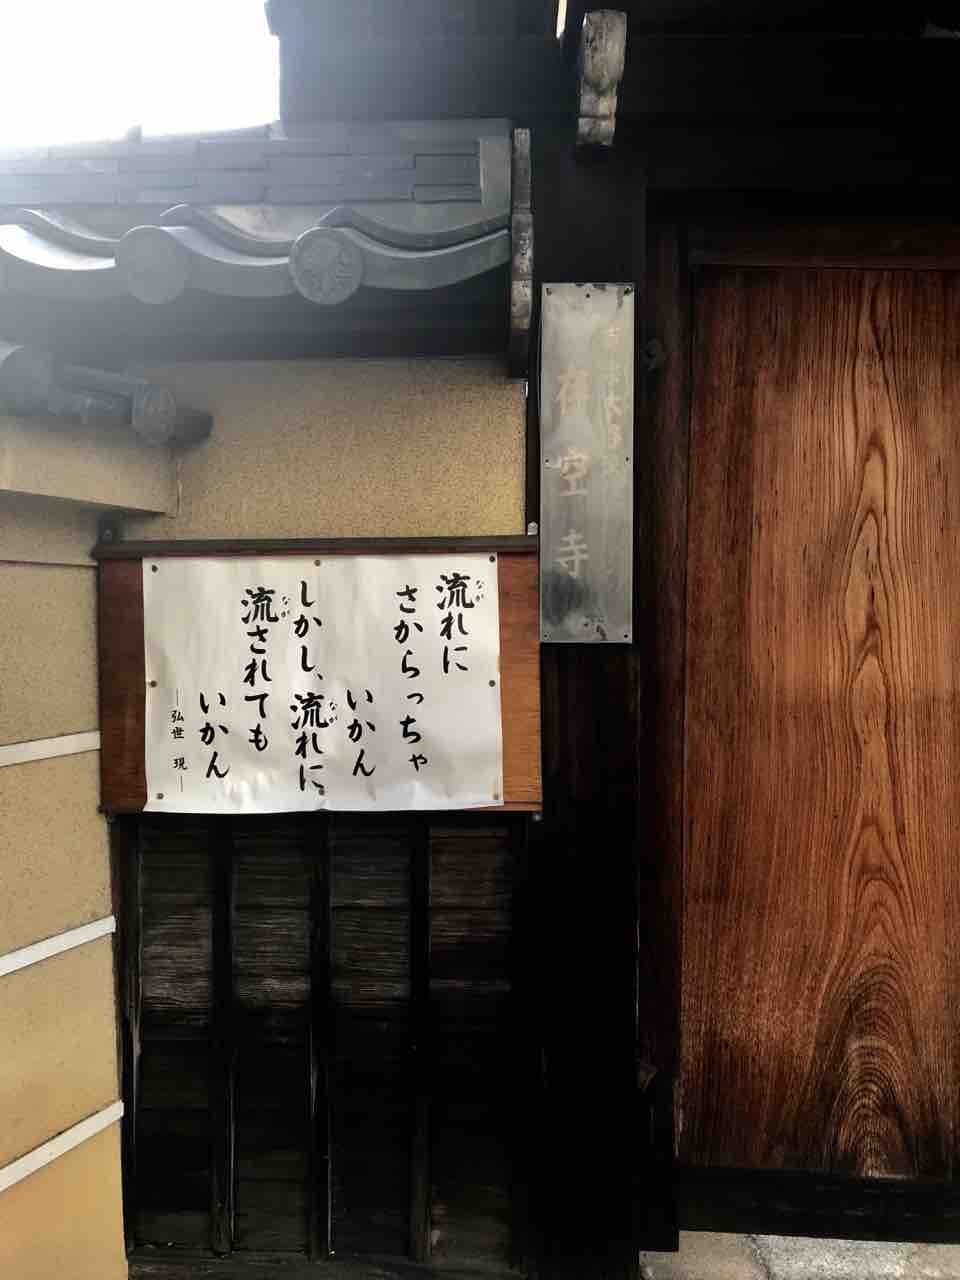 流れに
さからっちゃ
いかん
しかし、流れに
流されても
いかん
―弘世 現―
空寺